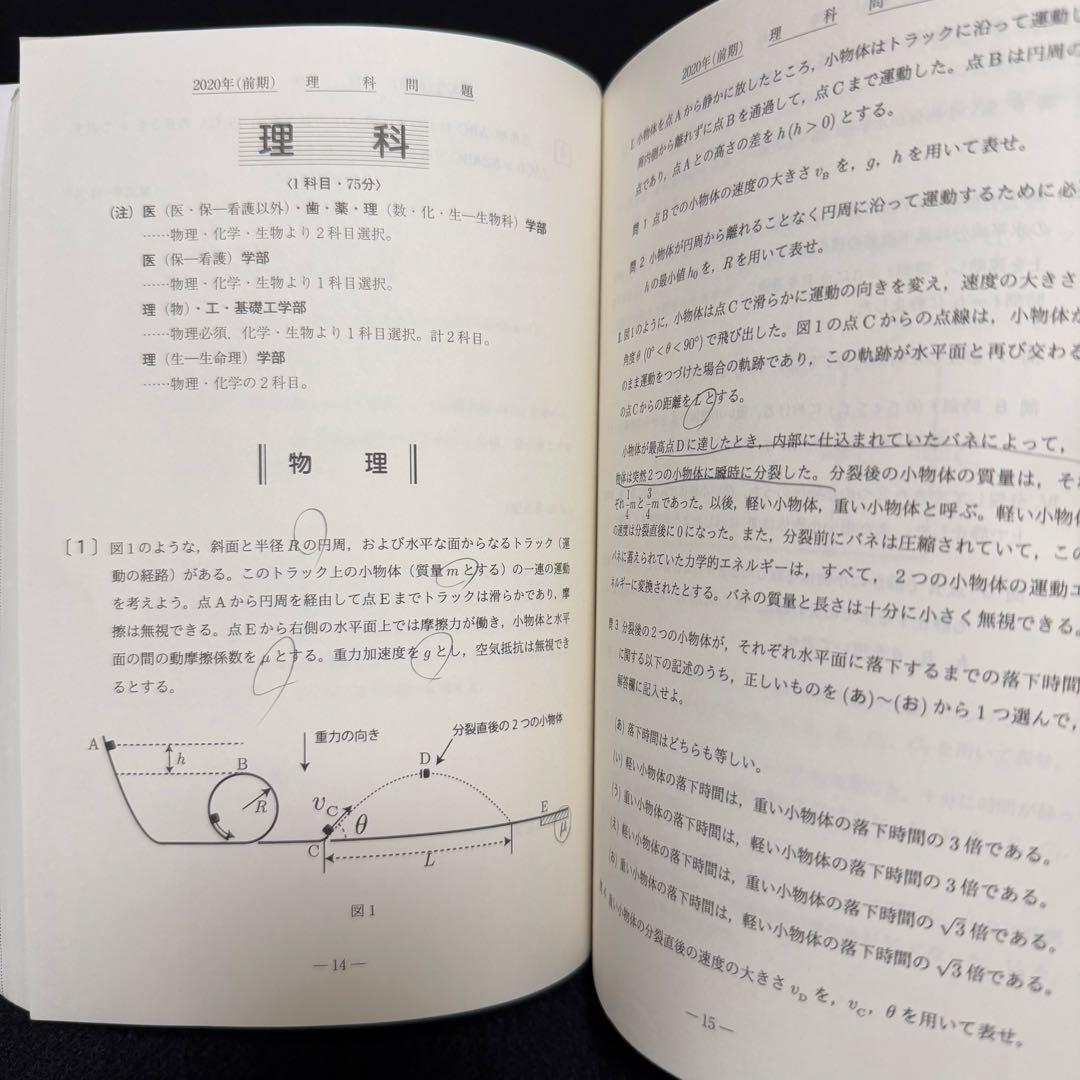 2020年(前期) 理 科 問 題
理 科
〈1科目・75分〉
(注) 医（医・保―看護以外）・歯・薬・理（数・化・生―生物科）学部
……物理・化学・生物より2科目選択。
医（保―看護）学部
……物理・化学・生物より1科目選択。
理（物）・工・基礎工学部
……物理必須，化学・生物より1科目選択。計2科目。
理（生―生命理）学部
……物理・化学の2科目。
物 理
〔1〕 図1のような，斜面と半径Rの円周，および水平な面からなるトラック（運
動の経路）がある。このトラック上の小物体（質量mとする）の一連の運動
を考えよう。点Aから円周を経由して点Eまでトラックは滑らかであり，摩
擦は無視できる。点Eから右側の水平面上では摩擦力が働き，小物体と水平
面の間の動摩擦係数をμとする。重力加速度をgとし，空気抵抗は無視でき
るとする。
A
h
B
R
重力の向き
分裂直後の2つの小物体
D
vC
θ
C
L
E
μ
図1
―14―
2020年(前期) 理 科 問
I. 小物体を点Aから静かに放したところ，小物体はトラックに沿って運動し
両内側から離れずに点Bを通過して，点Cまで運動した。点Bは円周の
点であり，点Aとの高さの差をh(h＞0)とする。
問1 点Bでの小物体の速度の大きさvBを，g，hを用いて表せ。
問2 小物体が円周から離れることなく円周に沿って運動するために必
hの最小値h0を，Rを用いて表せ。
II. 図1のように，小物体は点Cで滑らかに運動の向きを変え，速度の大きさ
角度θ(0°＜θ＜90°)で飛び出した。図1の点Cからの点線は，小物体が
のまま運動をつづけた場合の軌跡であり，この軌跡が水平面と再び交わる
の点Cからの距離をLとする。
小物体が最高点Dに達したとき，内部に仕込まれていたバネによって，
物体は突然2つの小物体に瞬時に分裂した。分裂後の小物体の質量は，それ
ぞれ1/4mと3/4mであった。以後，軽い小物体，重い小物体と呼ぶ。軽い小物体
の速度は分裂直後に0になった。また，分裂前にバネは圧縮されていて，この
バネに蓄えられていた力学的エネルギーは，すべて，2つの小物体の運動エ
ネルギーに変換されたとする。バネの質量と長さは十分に小さく無視できる。
問3 分裂後の2つの小物体が，それぞれ水平面に落下するまでの落下時間
に関する以下の記述のうち，正しいものを(あ)～(お)から1つ選んで，
解答欄に記入せよ。
(あ) 落下時間はどちらも等しい。
(い) 軽い小物体の落下時間は，重い小物体の落下時間の3倍である。
(う) 重い小物体の落下時間は，軽い小物体の落下時間の3倍である。
(え) 軽い小物体の落下時間は，重い小物体の落下時間の√3倍である。
(お) 重い小物体の落下時間は，軽い小物体の落下時間の√3倍である。
問4 重い小物体の分裂直後の速度の大きさvDを，vC，θを用いて表せ。
―15―